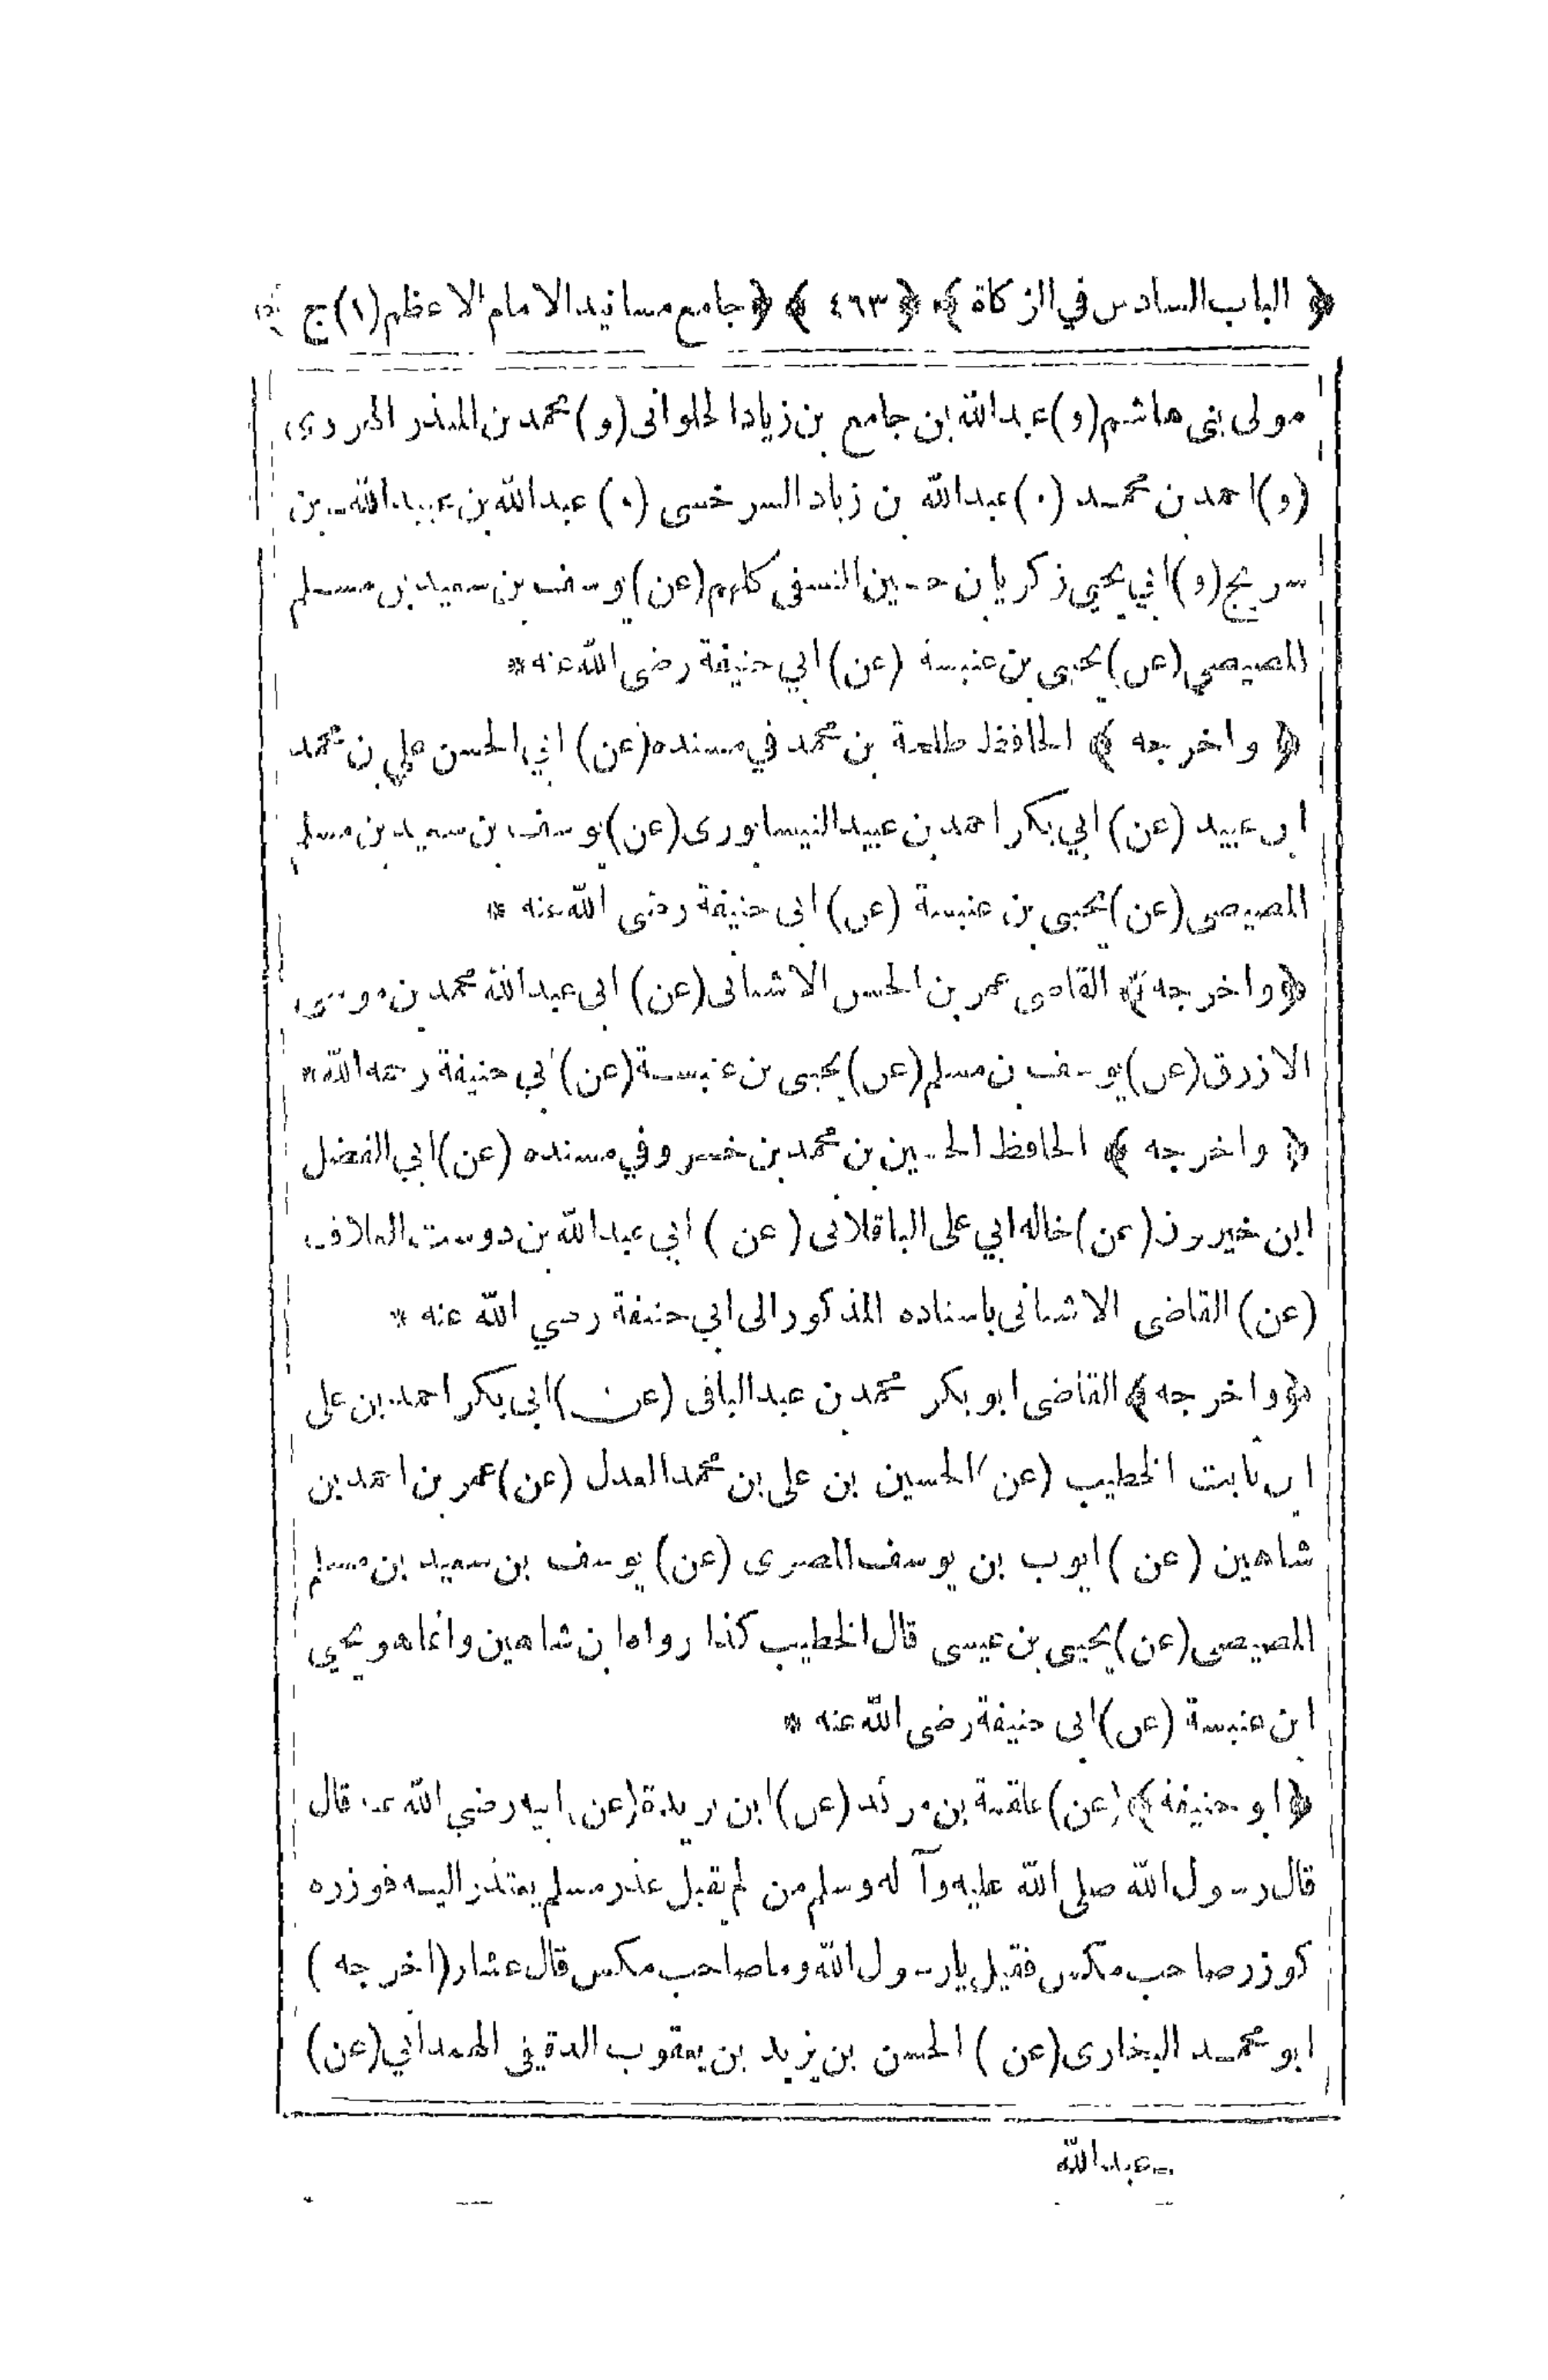 ﴿ الباب السادس في الزكاة ﴾ ﴿ ٤٦٣ ﴾ ﴿ جامع مسانيد الامام الاعظم (١) ج ﴾
مولى بنى هاشم (و) عبد الله بن جامع بن زياد الحلوانى (و) محمد بن المنذر الهروى
(و) احمد بن محمد (و) عبد الله بن زياد السرخسى (و) عبد الله بن عبيد الله بن
سريج (و) ابي يحيى زكريا بن حسين النسفى كلهم (عن) يوسف بن سعيد بن مسلم
المصيصي (عن) يحيى بن عنبسة (عن) ابي حنيفة رضى الله عنه *
﴿ واخرجه ﴾ الحافظ طلحة بن محمد في مسنده (عن) ابي الحسن علي بن محمد
ابن عبيد (عن) ابي بكر احمد بن عبيد النيسابورى (عن) يوسف بن سعيد بن مسلم
المصيصى (عن) يحيى بن عنبسة (عن) ابى حنيفة رضى الله عنه *
﴿ واخرجه ﴾ القاضى عمر بن الحسن الاشنانى (عن) ابى عبد الله محمد بن موسى
الازرق (عن) يوسف بن مسلم (عن) يحيى بن عنبسة (عن) ابي حنيفة رحمه الله *
﴿ واخرجه ﴾ الحافظ الحسين بن محمد بن خسرو في مسنده (عن) ابي الفضل
ابن خيرون (عن) خاله ابي على الباقلانى (عن) ابي عبد الله بن دوست العلاف
(عن) القاضى الاشنانى باسناده المذكور الى ابي حنيفة رضي الله عنه *
﴿ واخرجه ﴾ القاضى ابو بكر محمد بن عبد الباقى (عن) ابى بكر احمد بن على
ابن ثابت الخطيب (عن) الحسين بن على بن محمد المعدل (عن) عمر بن احمد بن
شاهين (عن) ايوب بن يوسف المصرى (عن) يوسف بن سعيد بن مسلم
المصيصى (عن) يحيى بن عيسى قال الخطيب كذا رواه ابن شاهين وانما هو يحيي
ابن عنبسة (عن) ابى حنيفة رضى الله عنه *
﴿ ابو حنيفة ﴾ (عن) علقمة بن مرثد (عن) ابن بريدة (عن) ابيه رضي الله عنه قال
قال رسول الله صلى الله عليه وآله وسلم من لم يقبل عذر مسلم يعتذر اليه فوزره
كوزر صاحب مكس فقيل يارسول الله وما صاحب مكس قال عشار (اخرجه)
ابو محمد البخارى (عن) الحسن بن يزيد بن يعقوب الدقيقي الهمداني (عن)
عبد الله